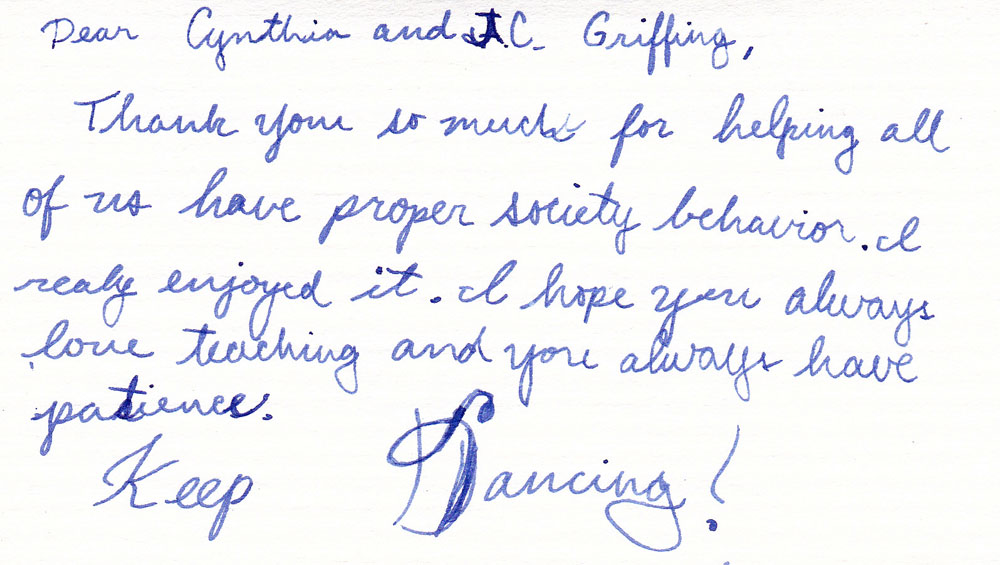 Dear Cynthia and J.C. Griffing,
Thank you so much for helping all
of us have proper society behavior. I
realy enjoyed it. I hope you always
love teaching and you always have
patience.
Keep Dancing!